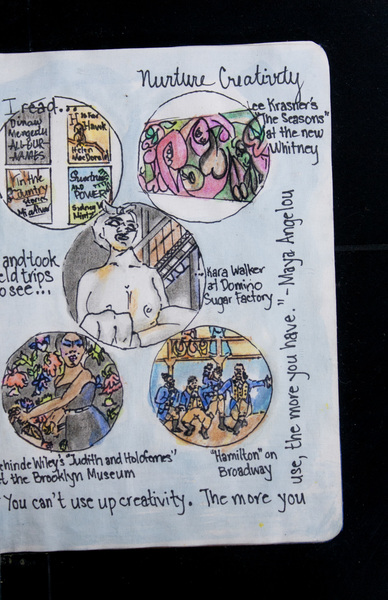 Nurture Creativity
I read...
Dinaw
Mengedu
ALL OUR
NAMES
H is For
Hawk
Helen
MacDonald
In the
Country
stories
Mia Alvar
Sweetness
AND
POWER
Sidney W
Mintz
ee Krasner's
"The Seasons"
at the new
Whitney
and took
eld trips
o see...
...Kara Walker
at Domino
Sugar Factory
ehinde Wiley's "Judith and Holofernes"
t the Brooklyn Museum
"Hamilton" on
Broadway
"You can't use up creativity. The more you
use, the more you have." - Maya Angelou